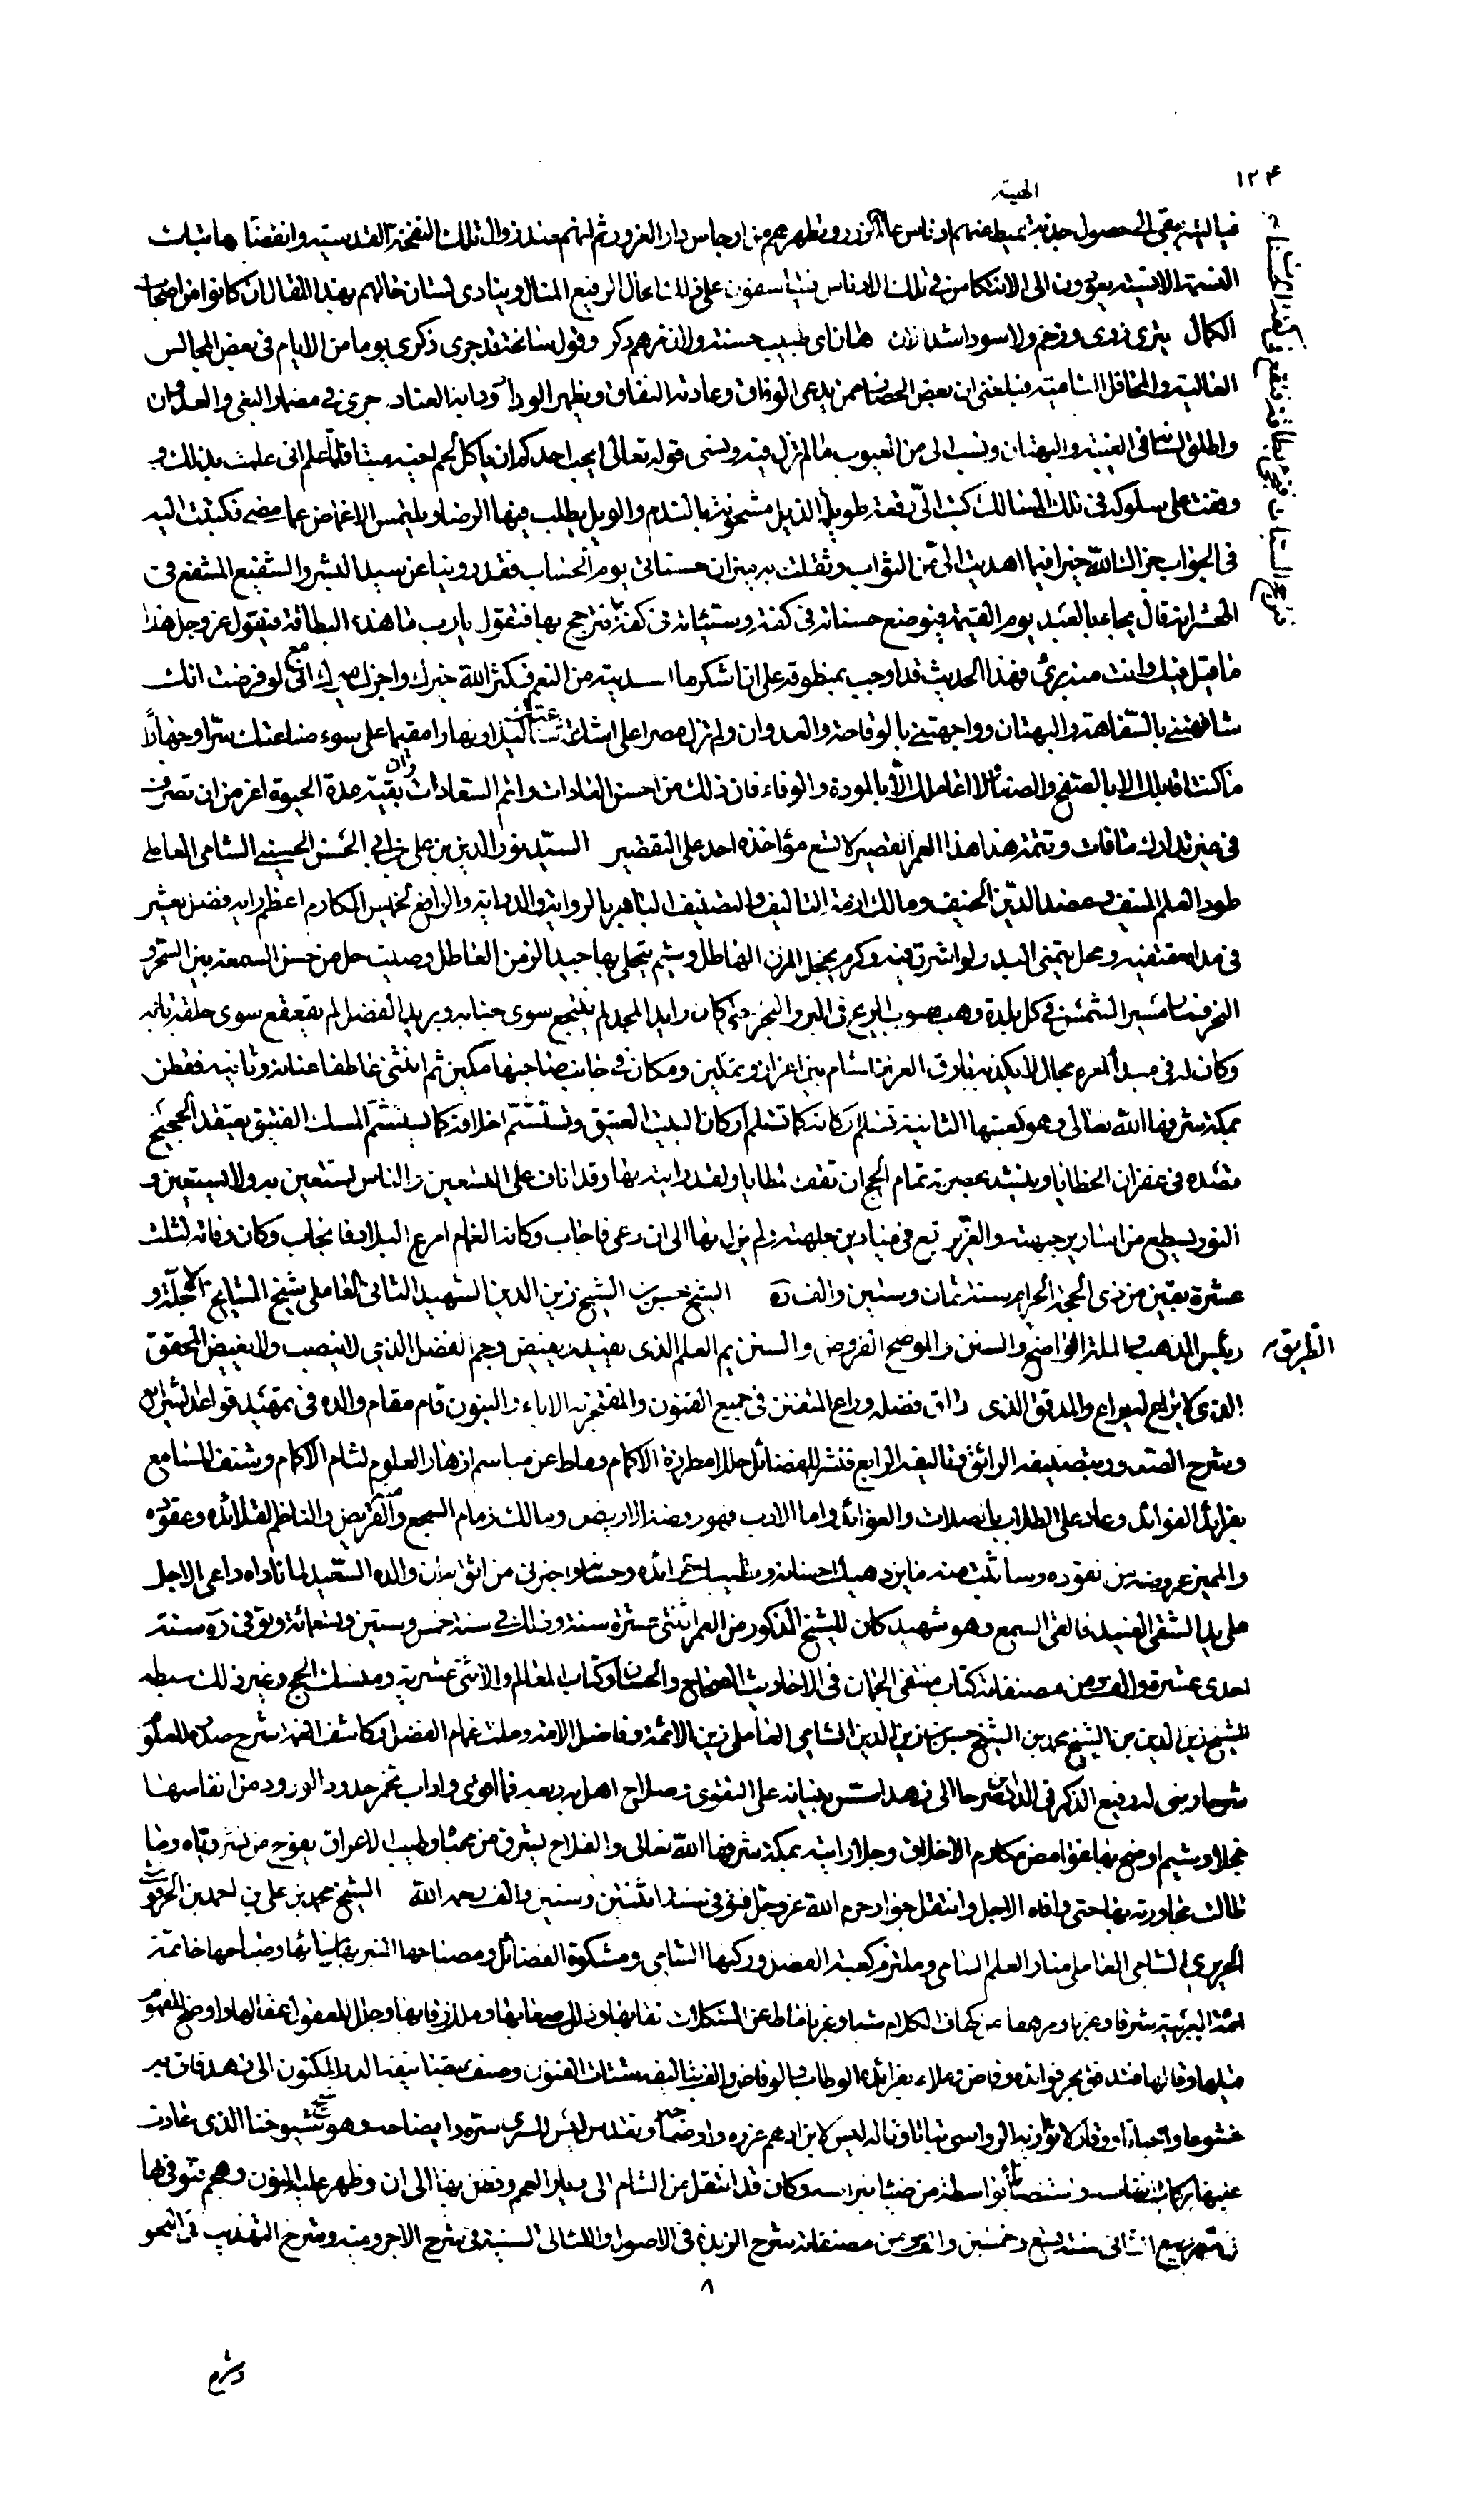 ١٢۴
الهية
فيا ليته يبقى الى حصول جذبة تميط عنهم ادناس عالم الزور وتطهرهم من ارجاس دار الغرور ثم انهم عند زوال تلك النفحة القدسية وانقضاء هاتيك
النسمة الانسية يعودون الى الانتكاس في تلك الادناس فيتأسفون على ذلك الحال الرفيع المنال وينادي لسان حالهم بهذا المقال ان كانوا من اصحاب
الكمال وقوله سانحة قد جرى ذكري يوما من الايام في بعض المجالس
العالية والمحافل السامية فبلغني ان بعض الحضار ممن يدعى الوفاق وعادته النفاق ويظهر الوداد ودابه العناد جرى في مضمار البغى والعدوان
واطلق لسانه في الغيبة والبهتان ونسب الى من العيوب ما لم تزل فيه ونسى قوله تعالى ايحب احدكم ان ياكل لحم اخيه ميتا فلما علم انى علمت بذلك و
وقفت على سلوكه في تلك المسالك كتب الىّ رقعة طويلة الذيل مشحونة بالندم والويل يطلب فيها الرضا ويلتمس الاغماض عما مضى فكتبت اليه
في الجواب جزاك الله خيرا فيما اهديت الىّ من الثواب وثقلت به ميزان حسناتي يوم الحساب فقد روينا عن سيد البشر والشفيع المشفع في
المحشر انه قال يجاء بالعبد يوم القيمة فتوضع حسناته في كفة وسيئاته في كفة فترجح بها فتقول يارب ما هذه البطاقة فيقول عز وجل هذا
ما قيل فيك وانت منه برئ فهذا الحديث قد اوجب بمنطوقه على ان اشكر ما اسديته من النعم فكثر الله خيرك واجزل ميرك مع انى لو فرضت انك
شافهتني بالسفاهة والبهتان وواجهتني بالوقاحة والعدوان ولم تزل مصرا على اشاعة شناعتك ليلا ونهارا مقيما على سوء صناعتك سرّا وجهارًا
ما كنت اقابلك الا بالصفح والصفاء ولا اعاملك الا بالمودة والوفاء فان ذلك من احسن العادات واتم السعادات وان بقية مدة الحيوة اعز من ان تصرف
في غير تدارك ما فات وتتمة هذا العمر القصير لا تسع مؤاخذة احد على التقصير السيّد نور الدين بن علي بن ابي الحسن الحسيني الشامي العاملي
طود العلم المنيف وعضد الدين الحنيف ومالك ازمة التاليف والتصنيف الباهر بالرواية والدراية والرافع لخميس المكارم اعظم راية فضل يعثر
في مداه مقتفيه ومحل يتمنى البدر لو اشرق فيه وكرم يخجل المزن الهاطل وشيم يتحلى بها جيد الزمن العاطل وصيت حل من حسن السمعة بين السحر و
النحر فسار مسير الشمس في كل بلدة وهب هبوب الريح في البر والبحر حتى كان رايد المجد لم ينتجع سوى جنابه وبريد الفضل لم يقعقع سوى حلقة بابه
وكان له في مبدأ امره مجال لا يكذبه بارق العز اذا شام بين اعزاز وتمكين ومكان في جانب صاحبها مكين ثم انثنى عاطفا عنانه وثانيه فقطن
بمكة شرفها الله تعالى وهو كعبتها الثانية تستلم اركانه كما تستلم اركان البيت العتيق وتستشمّ اخلاقه كما يستشم المسك الفتيق يعتقد الحجيج
قصده في غفران الخطايا وينشد بحضرته تمام الحج ان تقف المطايا ولقد رايته بها وقد اناف على التسعين والناس تستعين به ولا يستعين و
النور يسطع من اسارير جبهته والعز يرتع في ميادين جلهته ولم يزل بها الى ان دعى فاجاب وكانه الغمام امرع البلاد فانجاب وكان وفاته لثلث
عشرة بقين من ذي الحجة الحرام سنة ثمان وستين والف ره الشيخ حسن بن الشيخ زين الدين الشهيد الثاني العاملي شيخ المشايخ الاجلّة و
الطريق رئيس المذهب والملة الواضح والسنن والموضح الفروض والسنن يم العلم الذي يفيد ويفيض وجم الفضل الذي لا ينضب ولا يغيض المحقق
الذي لا يراع له يراع والمدقق الذي راق فضله وراع المتفنن في جميع الفنون والمفتخر به الاباء والبنون قام مقام والده في تمهيد قواعد الشرايع
وشرح الصدور بتصنيفه الرائق وتاليفه الرايع فنشر للفضائل حللا مطرزة الاكمام وماط عن مباسم ازهار العلوم لثام الاكمام وشنف المسامع
بفرائد الفوائد وعاد على الطلاب بالصلات والعوائد واما الادب فهو روضه الاريض ومالك زمام السجع منه والقريض والناظم لقلائده وعقوده
والمميز عروضه من نقوده وسأثبت منه ما يزدهيك احسانه وتصبيك خرائده وحسانه واخبرني من اثق به ان والده السعيد لما ناداه داعي الاجل
على يد الشقى العنيد فالقى السمع وهو شهيد كان للشيخ المذكور من العمر اثنتى عشرة سنة وذلك في سنة خمس وستين وتسعمائة وتوفى ره سنة
احدى عشرة والف ومن مصنفاته كتاب منتقى الجمان في الاحاديث الصحاح والحسان وكتاب المعالم والاثنى عشرية ومنسك الحج وغير ذلك سبطه
الشيخ زين الدين بن الشيخ محمد بن الشيخ حسن بن زين الدين الشامي العاملي زين الائمة وفاضل الامة وملث غمام الفضل وكاشف الغمة شرح صدره للعلوم
شرحا وبنى له رفيع الذكر في الدارين صرحا الى زهد اسس بنيانه على التقوى وصلاح اهل به ربعه فما اقوى واداب تحمر خدود الورود من انفاسها
خجلا وشيم اوضح بها غوامض مكارم الاخلاق وجلا رايته بمكة شرفها الله تعالى والفلاح يشرق من محياه وطيب الاعراق يفوح من نشر رياه وما
طالت مجاورته بها حتى وافاه الاجل وانتقل جوار حرم الله عز وجل فتوفى سنة اثنتين وستين والف رحمه الله الشيخ محمد بن علي بن احمد بن الحرفوشي
الحريري الشامي العاملي منار العلم السامي وملتزم كعبة الفضل وركنها الشامي ومشكوة الفضائل ومصباحها المنير به مساؤها وصباحها خاتمة
ائمة العربية شرقا وغربا والمرهف من كهام الكلام شبا وغربا فاماط عن المشكلات نقابها وذلل صعابها وملك رقابها وحل للعقول عقالها واوضح للفهوم
قيلها وقالها فتدفق بحر فوائده وفاض وملاء بفرائده الوطاب والوفاض والف بتاليفه شتات الفنون وصنف بتصانيفه الدر المكنون الى زهد فاق به
خشوعا واخباتا ووقار لا توازيه الرواسي ثباتا وتاله ليس لابن ادهم غرره واوضاحه وتقدس ليس للسرى سره وايضاحه وهو شيخ شيوخنا الذي عادت
علينا بركات انفاسه واستضأنا بواسطة من ضياء نبراسه وكان قد انتقل من الشام الى ديار العجم وقطن بها الى ان وظهر عليه المنون وهجم فتوفى بها
في شهر ربيع الثاني سنة تسع وخمسين والف ومن مصنفاته شرح الزبدة في الاصول واللئالي السنية في شرح الاجرومية وشرح التهذيب في النحو
٨
وشرح